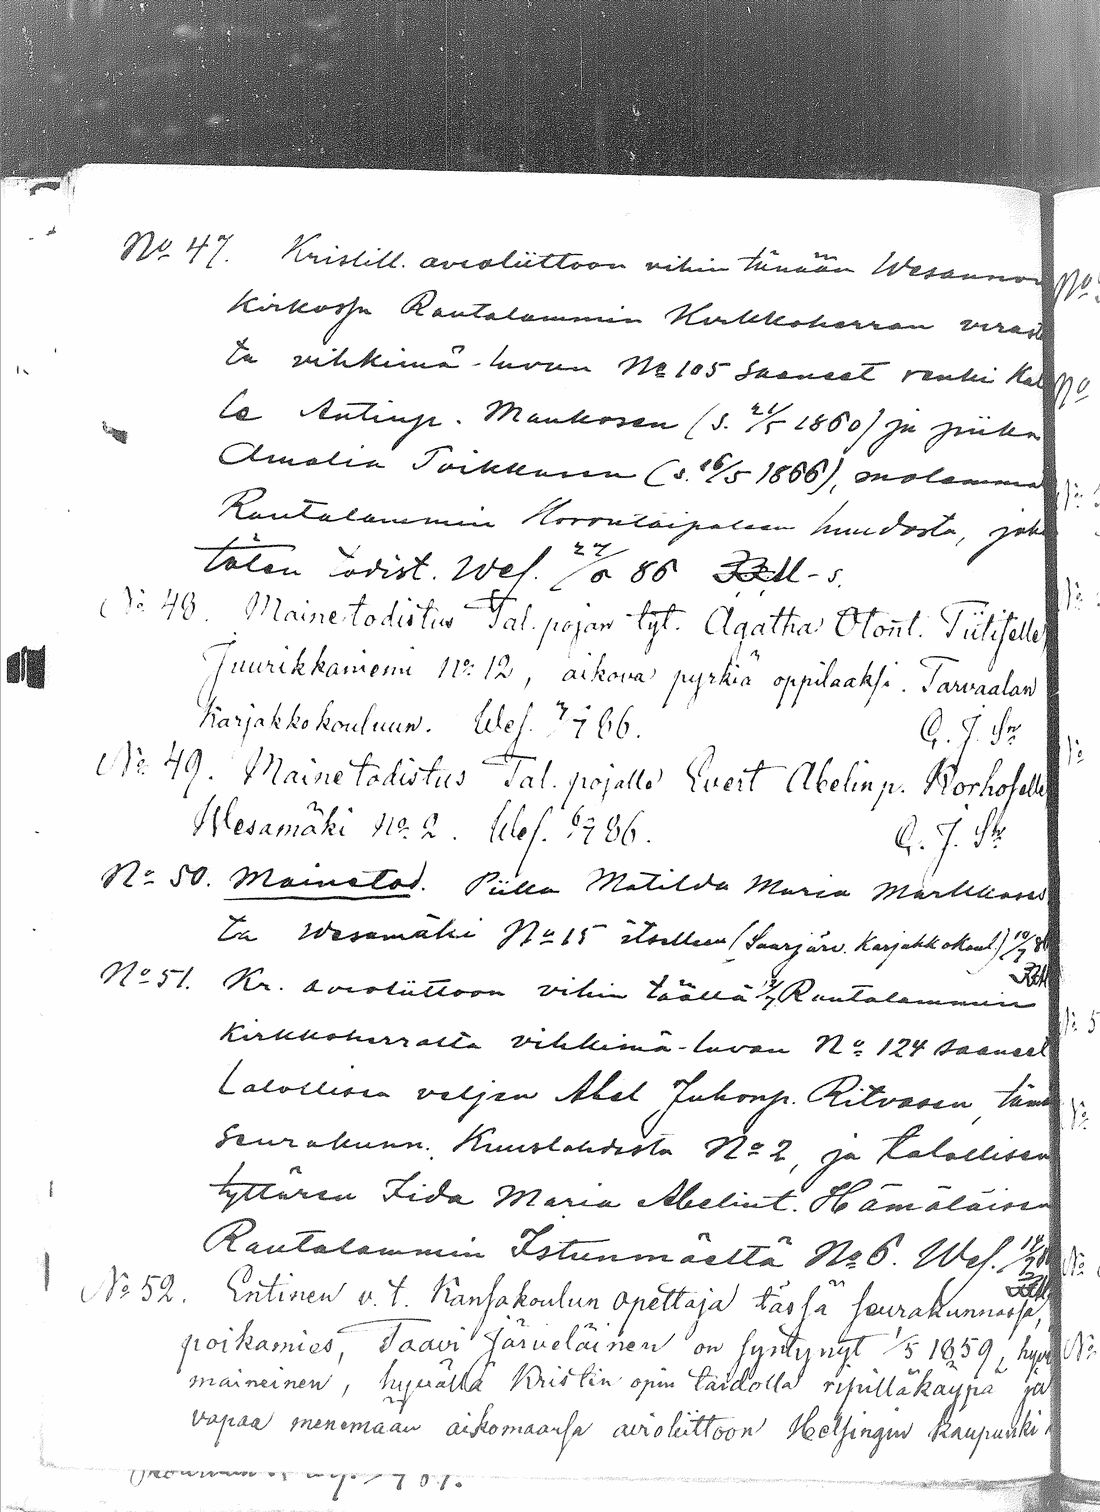 No 47. Kristill. avioliittoon vihin tänään Wesannon
Kirkossa Rautalammin Kirkkoherran virast
ta vihkimä-luvan No 105 saaneet renki Kal
le Antinp. Mankosen (s. 21/5 1860) ja piika
Amalia Toikkasen (s. 16/5 1866), molemma
Rautalammin Horontaipaleen kuudosta, jok
täten todist. Wes. 27/6 86
No 48. Mainetodistus Tal. pojan tyt. Agatha Otont. Tiitiselle
Juurikkaniemi no 12, aikova pyrkiä oppilaaksi Tarvaalan
Karjakkokouluun. Wes. 3/7 86.
No 49. Mainetodistus Tal. pojalle Evert Abelinp. Korhoselle
Wesamäki no 2. Wes. 6/7 86.
No 50. Mainetod. Piika Matilda Maria Markkases
ta Wesamäki No 15 itselleen (Saarjärv. Karjakkokoul.) 10/7 86
No 51. Kr. avioliittoon vihin täällä Rautalammin
Kirkkoherralta vihkimä-luvan No 124 saaneet
talollisen veljen Abel Juhonp. Ritvasen, täm
seurakunn. Kuuslahdesta No 2, ja talollisen
tyttären Iida Maria Abelint. Hämäläisen
Rautalammin Istunmäeltä No 6. Wes.
No 52. Entinen v. t. Kansakoulun opettaja tässä seurakunnassa,
poikamies, Taavi Järveläinen on syntynyt 1/5 1859, hyvä
maineinen, hyvällä Kristin opin taidolla ripilläkäypä ja
vapaa menemään aikomaansa avioliittoon Helsingin kaupunki